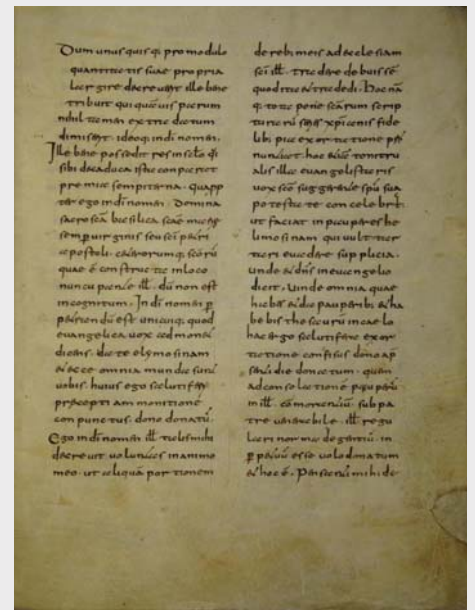 Dum unus quisq; pro modulo
quantitatis suae propria
largire decreverit ille bene
tribuit qui quamvis parum
nihil tamen extra dictum
dimiserit. ideoq; in di nomen.
Ille bene possedit res in sclo qi
sibi de caduca ista conparet
premia sempiterna. quapp
ter ego in di nomen. Domina
sacroscā basilica scae mariae
semp uirginis seu sci petri
apostoli. caeterorumq; scorū
quae ē constructa in loco
nuncupante ill. dū non est
incognitum. In di nomen p
petrandū est unicuiq; quod
evangelica vox admonet
dicens. date elymosinam
et ecce omnia munda sunt
vobis. huius ego salutifere
precepti ammonitione
conpunctus. dono donatū.
Ego in di nomen ill. talis mihi
decrevit voluntas in animo
meo. ut aliquam portionem
de reb; meis ad ecclesiam
sci ill. tradere debuissē
quod ita et tradedi. Hoc nā
q; tota pene scārum scrip
turarū xpianis fide
lib; pia exortatione
nunciat hoc etiā tonitru
alis illa euangelistaris
vox scō suggerente spū sua
potestate concelebrat
ut faciat in pauperes he
limosinam qui vult tar
tari euadere supplicia.
unde et dns in euuangelio
dicit. Unde omnia quae
habes et da pauperib; et ha
bebis thesaurū in caelo
hac ergo salutifere exor
tatione confisus dono ap
die donatum. quem
ad consolatione pauperū
in ill. cōmorantiū sub pa
tre venerabile. ill. regu
lari norma degentiū. in
p petuū esse volo donatum
et hoc ē. Placuit mihi de